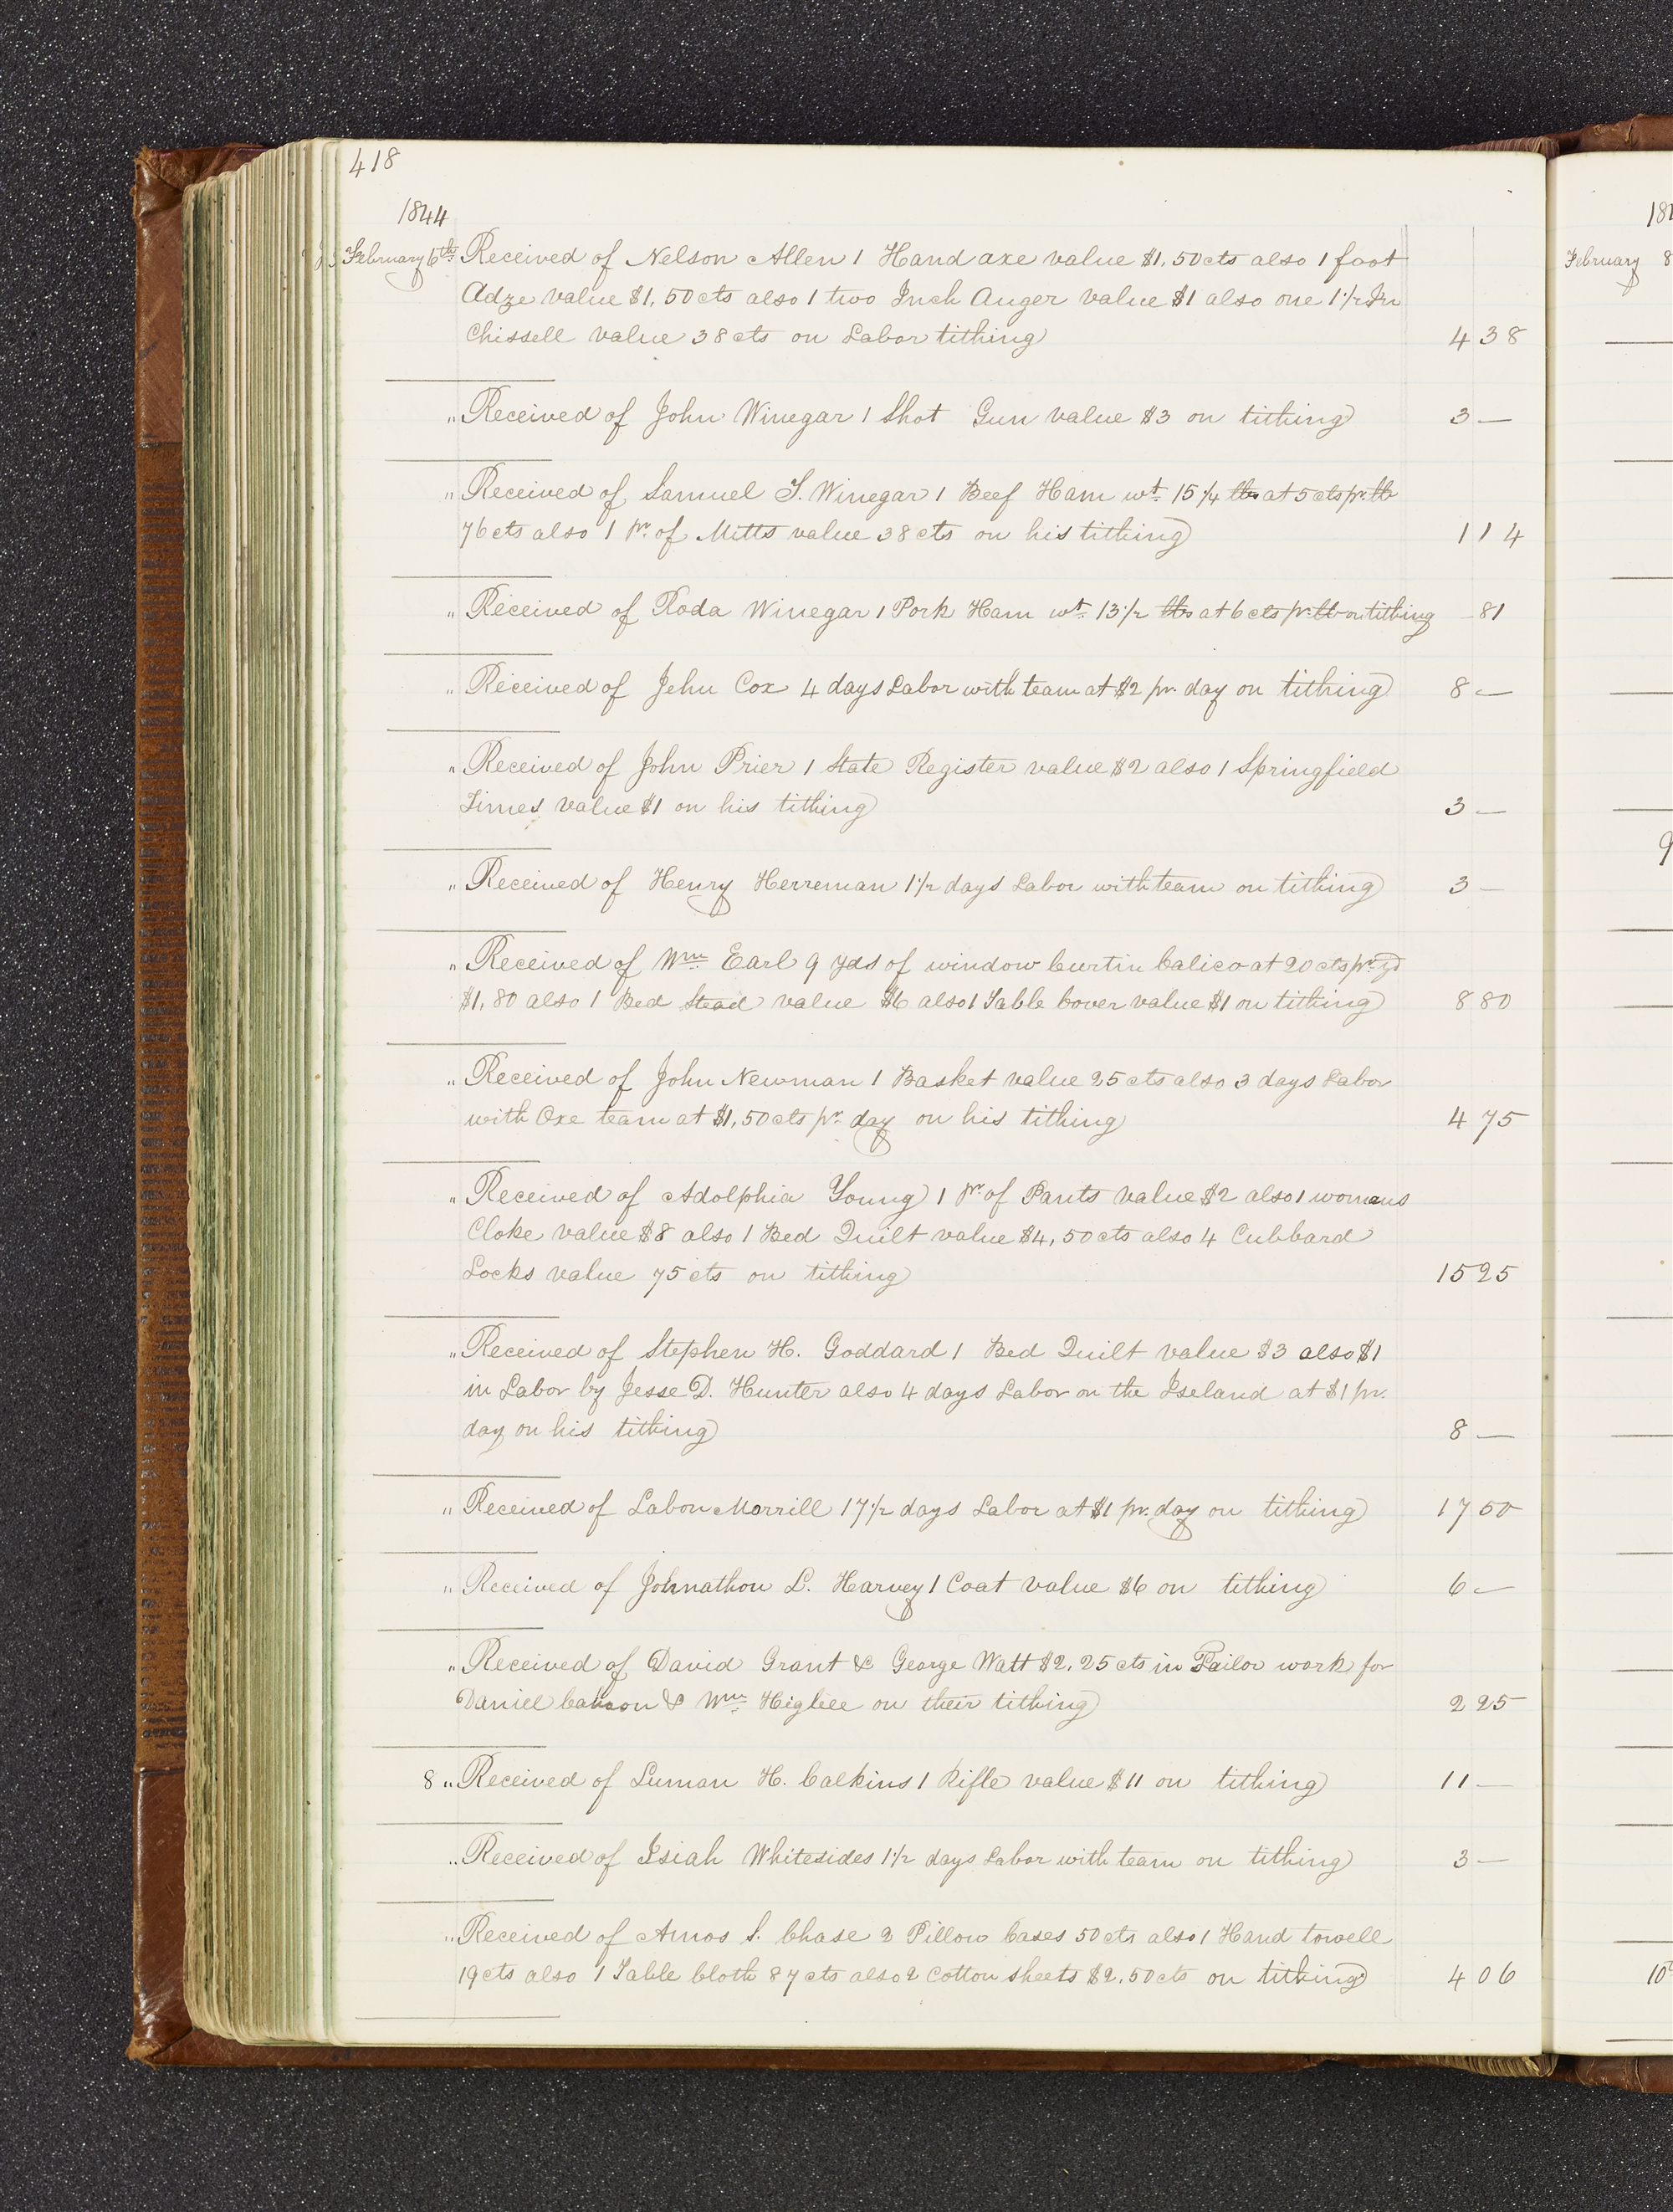 418
1844
February 6th Received of Nelson Allen 1 Hand axe value $1,50cts also 1 foot
Adze value $1,50cts also 1 two Inch Auger value $1 also one 1 1/2 In
Chissell value 38cts on Labor tithing 4 38
" Received of John Winegar 1 Shot Gun value $3 on tithing 3 —
" Received of Samuel T. Winegar 1 Beef Ham wt. 15 1/4 lbs at 5cts pr. lb
76cts also 1 pr. of Mitts value 38cts on his tithing 1 14
" Received of Roda Winegar 1 Pork Ham wt. 13 1/2 lbs at 6cts pr. lb on tithing - 81
" Received of Jehu Cox 4 days Labor with team at $2 pr. day on tithing 8 —
" Received of John Prier 1 State Register value $2 also 1 Springfield
Times value $1 on his tithing 3 —
" Received of Henry Herreman 1 1/2 days Labor with team on tithing 3 —
" Received of Wm. Earl 9 yds of window Curtin Calico at 20cts pr. yd
$1,80 also 1 Bed Stead value $6 also 1 Table Cover value $1 on tithing 8 80
" Received of John Newman 1 Basket value 25cts also 3 days Labor
with Oxe team at $1,50cts pr. day on his tithing 4 75
" Received of Adolphia Young 1 pr. of Pants value $2 also 1 womans
Cloke value $8 also 1 Bed Quilt value $4,50cts also 4 Cubbard
Locks value 75cts on tithing 15 25
" Received of Stephen H. Goddard 1 Bed Quilt value $3 also $1
in Labor by Jesse D. Hunter also 4 days Labor on the Iseland at $1 pr.
day on his tithing 8 —
" Received of Labon Morrill 17 1/2 days Labor at $1 pr. day on tithing 17 50
" Received of Johnathon L. Harvey 1 Coat value $6 on tithing 6 —
" Received of David Grant & George Watt $2,25cts in Tailor work for
Daniel & Wm. Higbee on their tithing 2 25
8 " Received of Luman H. Calkins 1 Rifle value $11 on tithing 11 —
" Received of Isiah Whitesides 1 1/2 days Labor with team on tithing 3 —
" Received of Amos S. Chase 2 Pillow Cases 50cts also 1 Hand towell
19cts also 1 Table Cloth 87cts also 2 Cotton sheets $2,50cts on tithing 4 06
February 8